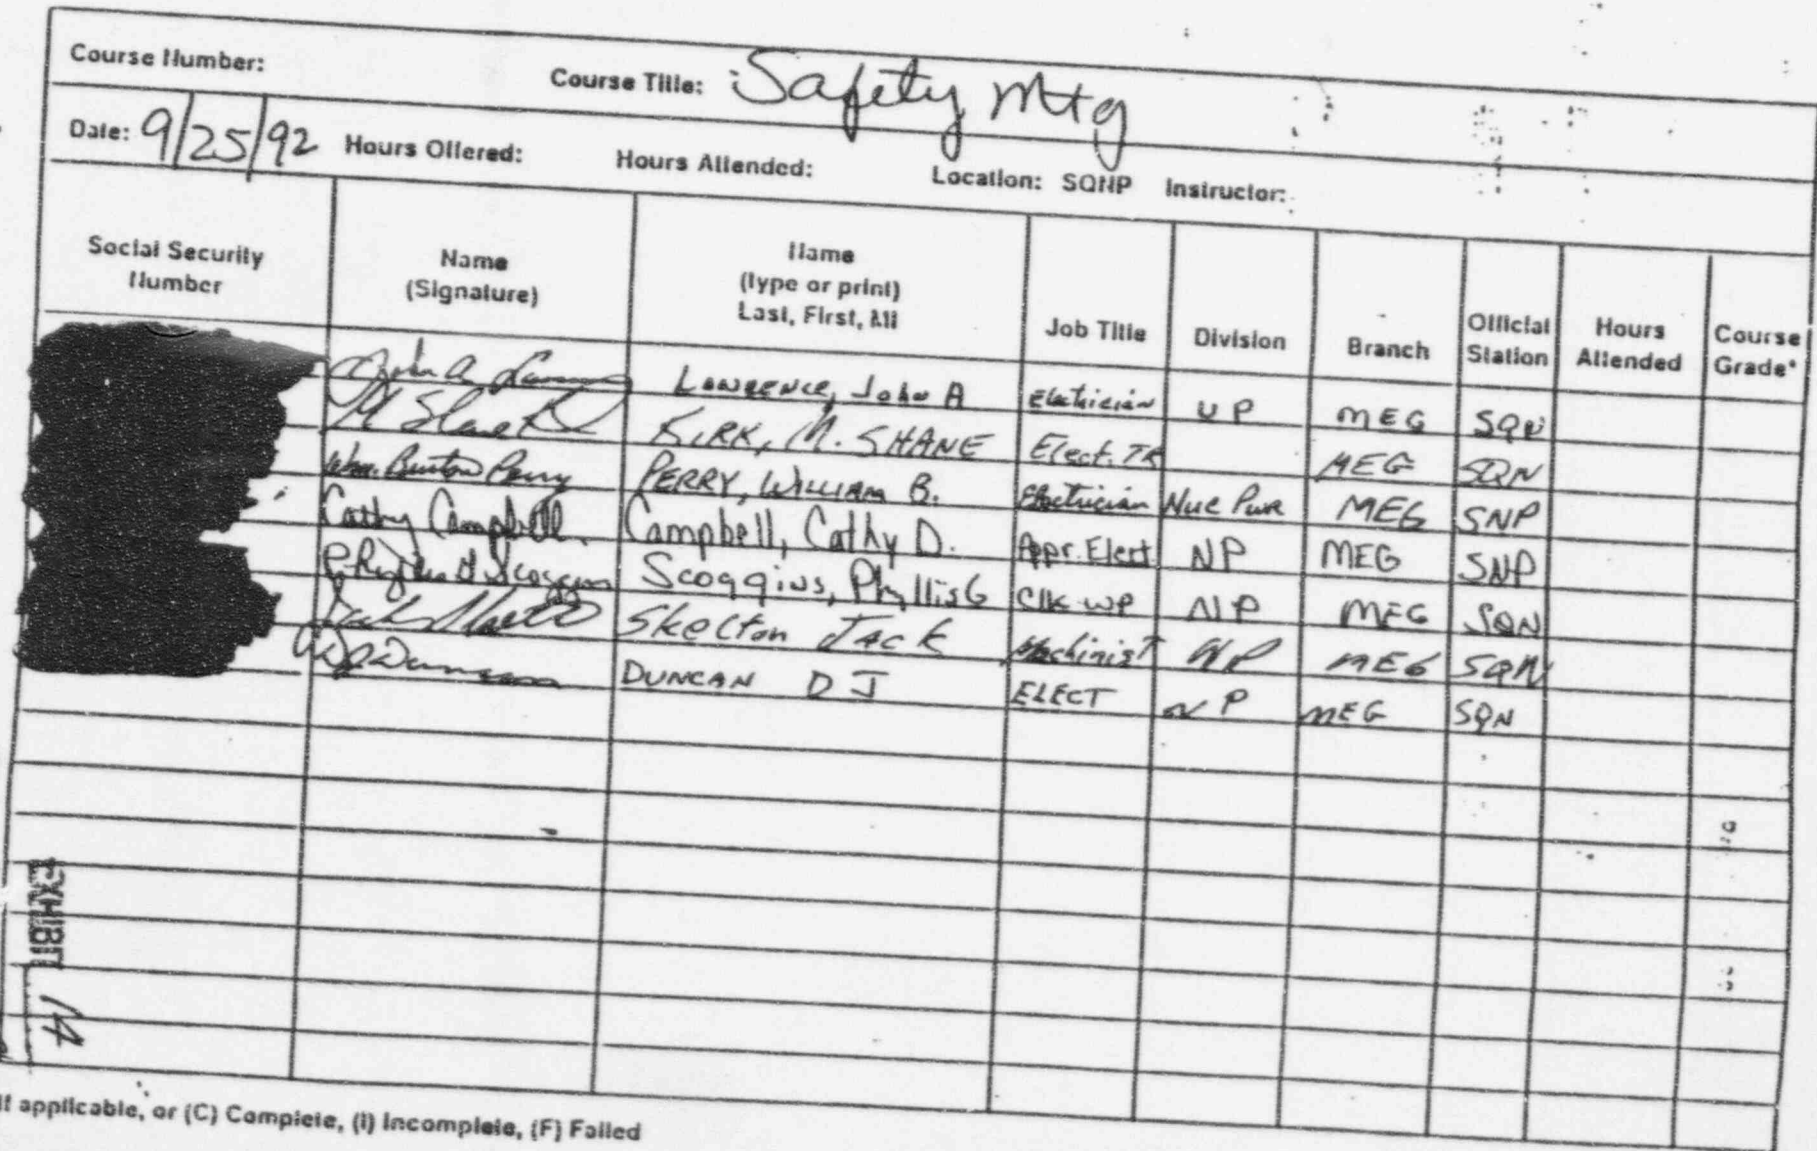 Course Number: Course Title: Safety Mtg
Date: 9/25/92 Hours Offered: Hours Attended: Location: SQNP Instructor:
Social Security Number Name (Signature) Name (type or print) Last, First, MI Job Title Division Branch Official Station Hours Attended Course Grade*
John A. Lawrence, John A Electrician UP MEG SQN
M Shane Kirk KIRK, M. SHANE Elect. TR MEG SQN
Wm. Burton Perry PERRY, WILLIAM B. Electrician Nuc Pwr MEG SNP
Cathy Campbell Campbell, Cathy D. Appr. Elect NP MEG SNP
Phyllis G Scoggins Scoggins, Phyllis G Clk WP NP MEG SQN
Jack Skelton Skelton Jack Machinist NP MEG SQN
DJ Duncan DUNCAN D J ELECT NP MEG SQN
EXHIBIT 14
If applicable, or (C) Complete, (I) Incomplete, (F) Failed